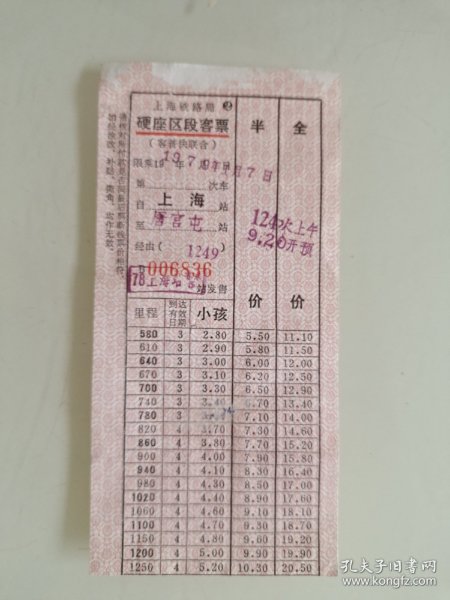 上海铁路局 ②
硬座区段客票
（客普快联合）
半 全
限乘19 年
1979年 月7日
第 次车
自 上海 站
至 唐官屯 站
经由（ 1249）
124次上午
9.20开预
006836
站发售
里程 到达有效日期 小孩 价 价
580 3 2.80 5.50 11.10
610 3 2.90 5.80 11.50
640 3 3.00 6.00 12.00
670 3 3.10 6.20 12.50
700 3 3.30 6.50 12.90
740 3 3.40 6.70 13.40
780 3 7.10 14.00
820 4 3.70 7.30 14.60
860 4 3.80 7.70 15.20
900 4 4.00 7.90 15.80
940 4 4.10 8.30 16.40
980 4 4.30 8.50 17.00
1020 4 4.40 8.90 17.60
1060 4 4.60 9.10 18.10
1100 4 4.70 9.30 18.70
1150 4 4.80 9.60 19.30
1200 4 5.00 9.90 19.90
1250 4 5.20 10.30 20.50
孔夫子旧书网
www.kongfz.com